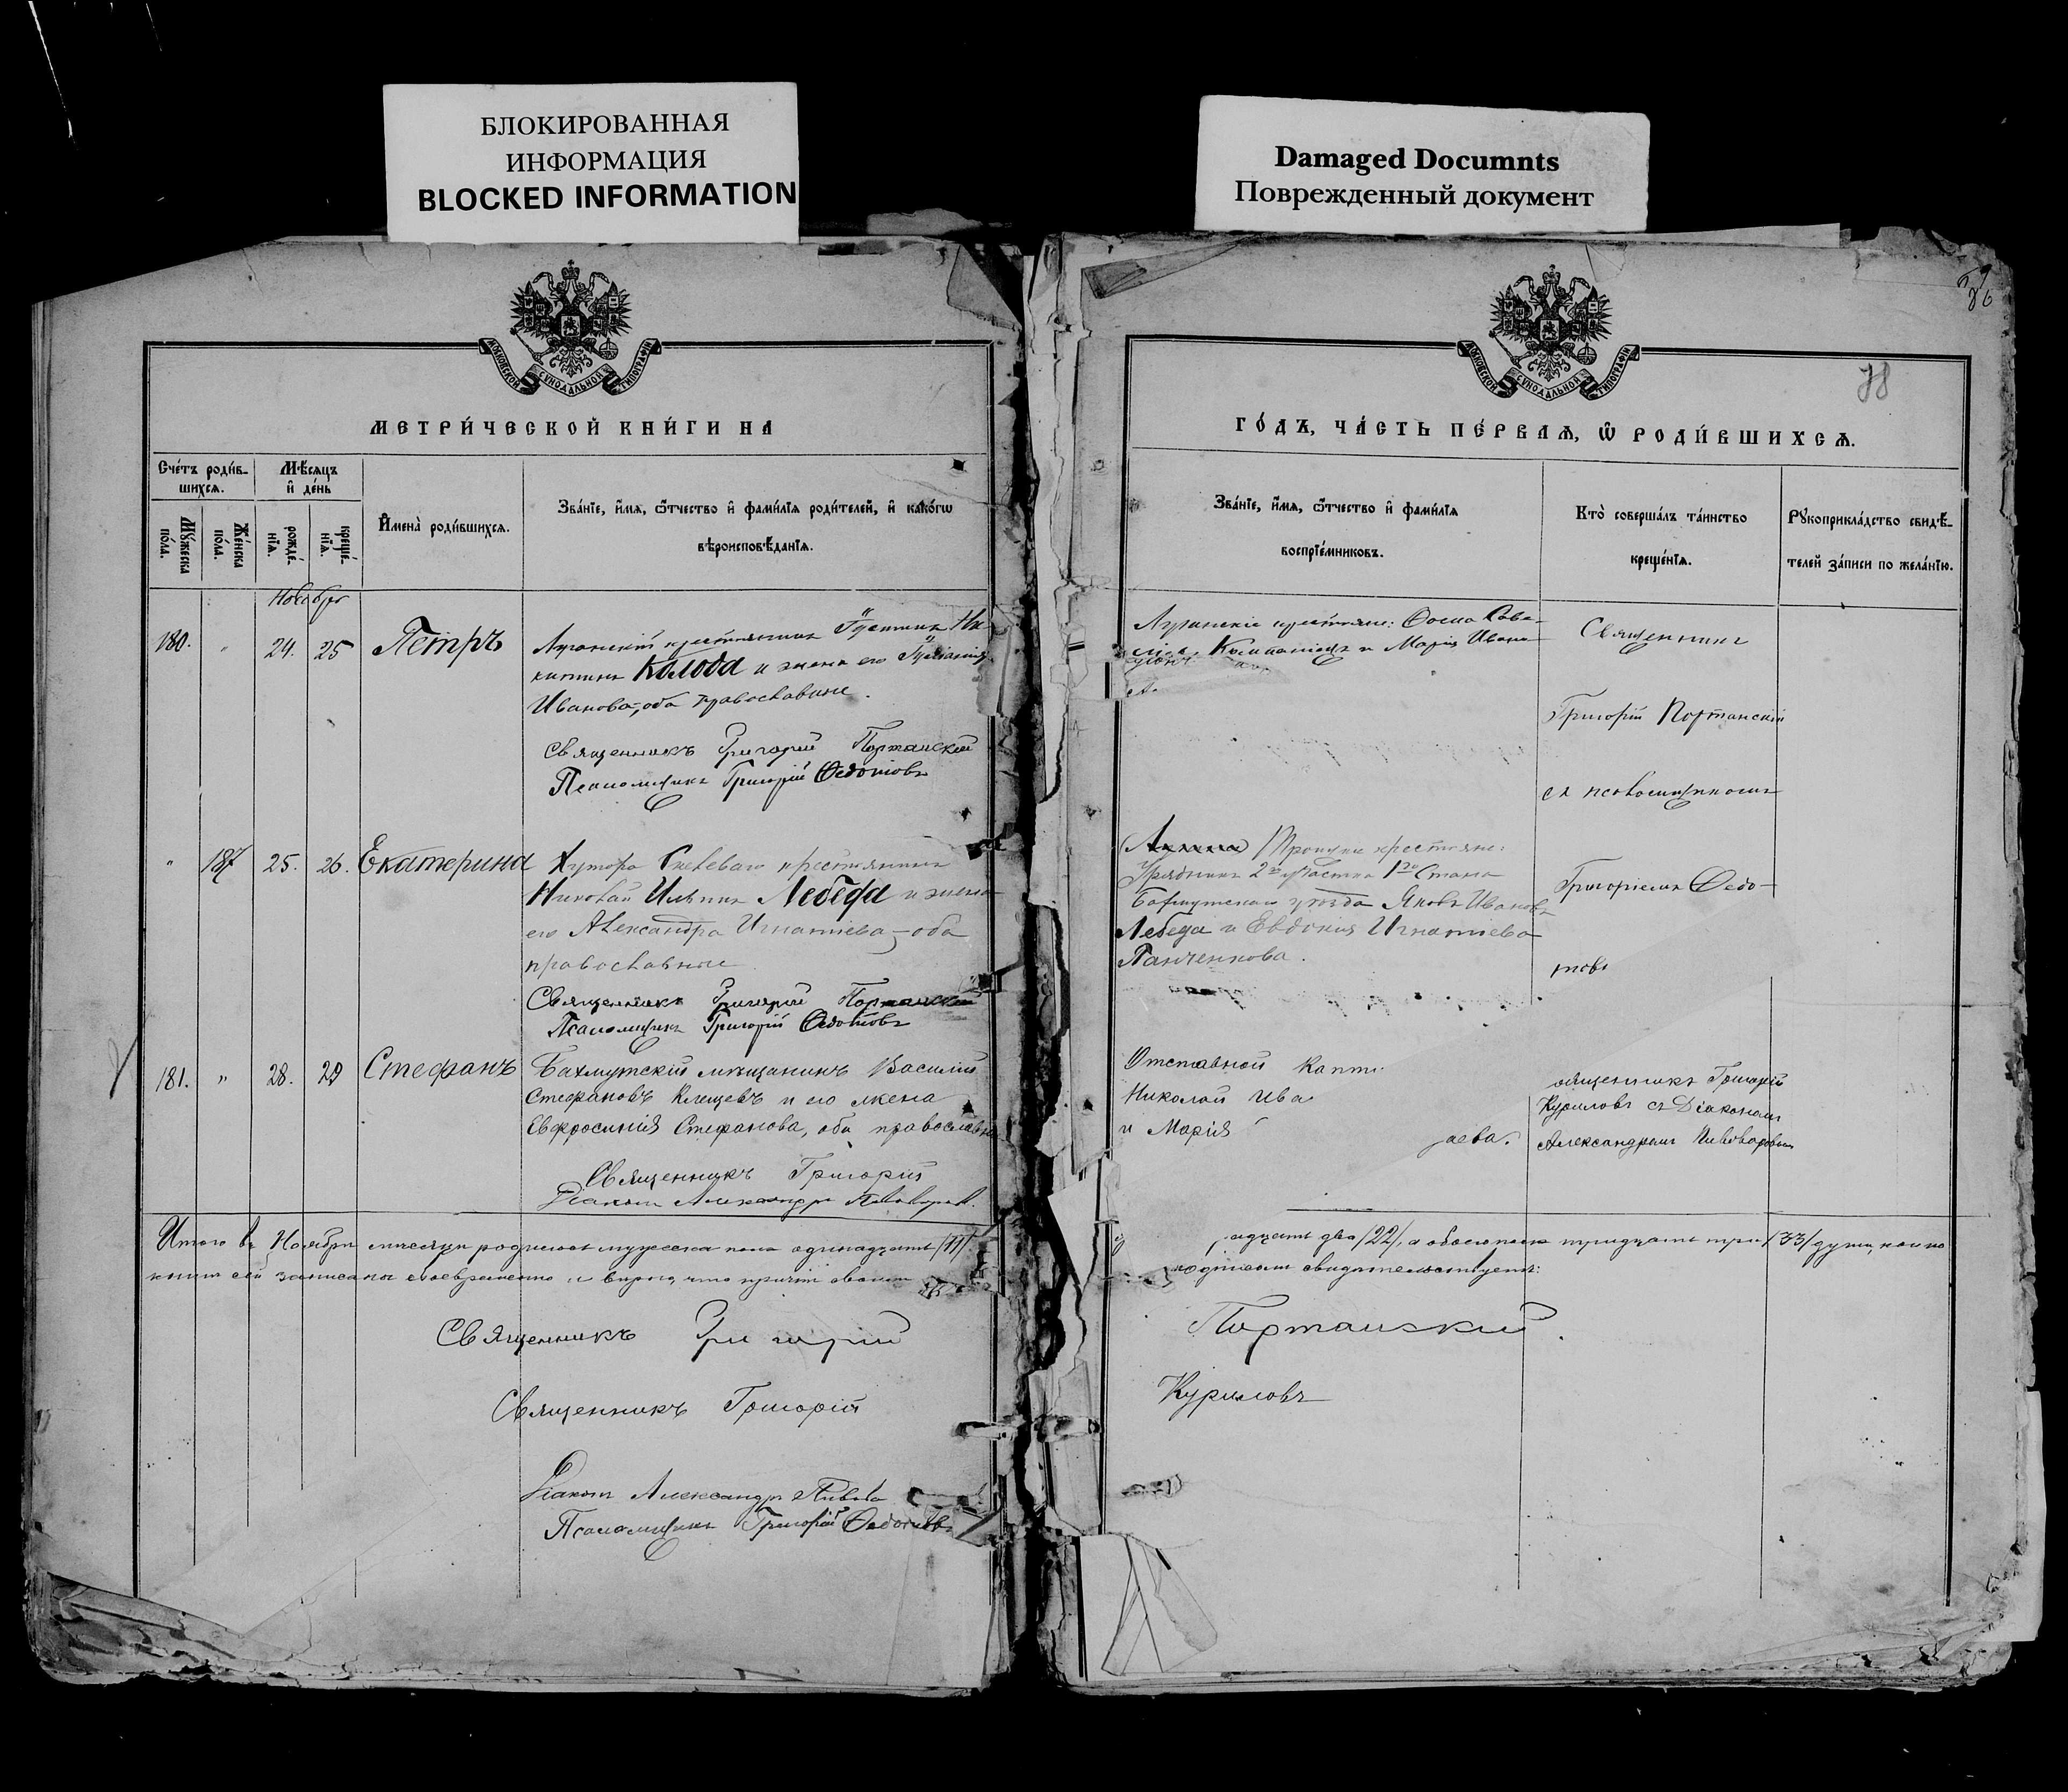 БЛОКИРОВАННАЯ
ИНФОРМАЦИЯ
BLOCKED INFORMATION
Damaged Documnts
Поврежденный документ
МОСКОВСКОЙ СѴНОДАЛЬНОЙ ТИПОГРАФІИ
МЕТРИ́ЧЕСКОЙ КНИ́ГИ НА
Сче́тъ роди́в-
шихсѧ.
Мꙋ́жеска по́ла.
Же́нска по́ла.
Мѣ́сѧцъ
и҆ де́нь
рожде́-
нїѧ.
креще́-
нїѧ.
И҆мена̀ роди́вшихсѧ.
Зва́нїе, и҆́мѧ, ѻ҆́тчество и҆ фами́лїѧ роди́телей, и҆ како́гѡ
вѣроисповѣ́данїѧ.
Ноябрь
180. " 24. 25 Петръ
Луганскій крестьянинъ Ни-
китинъ Колода и жена его
Иванова, оба православные.
Священникъ Григорій Портанскій
Псаломщикъ Григорій Ѳедотовъ
" 187 25. 26. Екатерина Хутора крестьянинъ
Николай Ильинъ Лебеда и жена
его Александра Игнатьева, оба
православные
Священникъ Григорій Портанскій
Псаломщикъ Григорій Ѳедотовъ
181. " 28. 29 Стефанъ Бахмутскій мѣщанинъ Василій
Стефановъ Клещевъ и его жена
Евфросинія Стефанова, оба православн
Священникъ Григорій
Діаконъ Александръ Пивоваровъ.
Итого въ Ноябрѣ мѣсяцѣ родилось мужеска пола одинадцать /11/
записаны своевременно и вѣрно, что причтъ
Священникъ Григорій
Священникъ Григорій
Діаконъ Александръ Пивова
Псаломщикъ Григорій Ѳедотовъ
МОСКОВСКОЙ СѴНОДАЛЬНОЙ ТИПОГРАФІИ
78
ГО́ДЪ, ЧА́СТЬ ПЕ́РВАѦ, Ѡ҆ РОДИ́ВШИХСѦ.
Зва́нїе, и҆́мѧ, ѻ҆́тчество и҆ фами́лїѧ
воспрїе́мниковъ.
Кто̀ соверша́лъ та́инство
креще́нїѧ.
Рꙋкоприкла́дство свидѣ́-
телей за́писи по жела́нїю.
Луганскіе крестьяне: Ѳома Саве-
Компаніецъ и Марія Ивано
Священникъ
Григорій Портанскій
съ псаломщикомъ
Григоріемъ Ѳедо-
товъ
Троицкіе крестьяне:
Урядникъ 2го участка 1го Стана
Бахмутскаго уѣзда Яковъ Ивановъ
Лебеда и Евдокія Игнатьева
Панченкова.
Отставной
Николай Ива
и Марія
аева.
священникъ Григорій
Куриловъ съ Діакономъ
Александромъ Пивоваровымъ
адцать два /22/, а обоего пола тридцать три /33/ душъ,
подписомъ свидѣтельствуетъ:
Портанскій.
Куриловъ